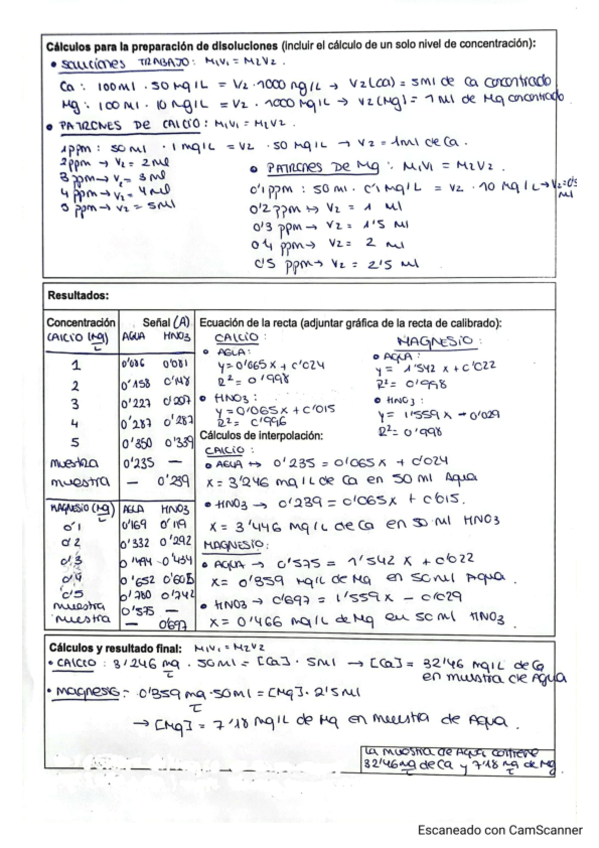 Cálculos para la preparación de disoluciones (incluir el cálculo de un solo nivel de concentración):
• SOLUCIONES TRABAJO: M1V1 = M2V2.
Ca: 100 ml · 50 mg/L = V2 · 1000 mg/L → V2(Ca) = 5 ml de Ca concentrado
Mg: 100 ml · 10 mg/L = V2 · 1000 mg/L → V2[Mg] = 1 ml de Mg concentrado
• PATRONES DE CALCIO: M1V1 = M2V2.
1 ppm: 50 ml · 1 mg/L = V2 · 50 mg/L → V2 = 1 ml de Ca.
2 ppm → V2 = 2 ml
3 ppm → V2 = 3 ml
4 ppm → V2 = 4 ml
5 ppm → V2 = 5 ml
• PATRONES DE Mg: M1V1 = M2V2.
0'1 ppm: 50 ml · 0'1 mg/L = V2 · 10 mg/L → V2 = 0'5 ml
0'2 ppm → V2 = 1 ml
0'3 ppm → V2 = 1'5 ml
0'4 ppm → V2 = 2 ml
0'5 ppm → V2 = 2'5 ml
Resultados:
Concentración Señal (A)
CALCIO (mg/L) AGUA HNO3
1 0'086 0'081
2 0'158 0'148
3 0'227 0'207
4 0'287 0'287
5 0'350 0'339
muestra 0'235 —
muestra — 0'239
MAGNESIO (mg/L) AGUA HNO3
0'1 0'169 0'119
0'2 0'332 0'292
0'3 0'494 0'434
0'4 0'652 0'605
0'5 0'780 0'742
muestra 0'575 —
muestra — 0'697
Ecuación de la recta (adjuntar gráfica de la recta de calibrado):
CALCIO:
• AGUA:
y = 0'065x + 0'024
R2 = 0'998
• HNO3:
y = 0'065x + 0'015
R2 = 0'996
MAGNESIO:
• AGUA:
y = 1'542x + 0'022
R2 = 0'998
• HNO3:
y = 1'559x - 0'029
R2 = 0'998
Cálculos de interpolación:
CALCIO:
• AGUA → 0'235 = 0'065x + 0'024
x = 3'246 mg/L de Ca en 50 ml Agua
• HNO3 → 0'239 = 0'065x + 0'015.
x = 3'446 mg/L de Ca en 50 ml HNO3
MAGNESIO:
• AGUA → 0'575 = 1'542x + 0'022
x = 0'359 mg/L de Mg en 50 ml Agua.
• HNO3 → 0'697 = 1'559x - 0'029
x = 0'466 mg/L de Mg en 50 ml HNO3.
Cálculos y resultado final: M1V1 = M2V2
• CALCIO: 3'246 mg/L · 50 ml = [Ca] · 5 ml → [Ca] = 32'46 mg/L de Ca
en muestra de Agua
• Magnesio: 0'359 mg/L · 50 ml = [Mg] · 2'5 ml
→ [Mg] = 7'18 mg/L de Mg en muestra de Agua.
La muestra de Agua contiene
32'46 mg/L de Ca y 7'18 mg/L de Mg.
Escaneado con CamScanner